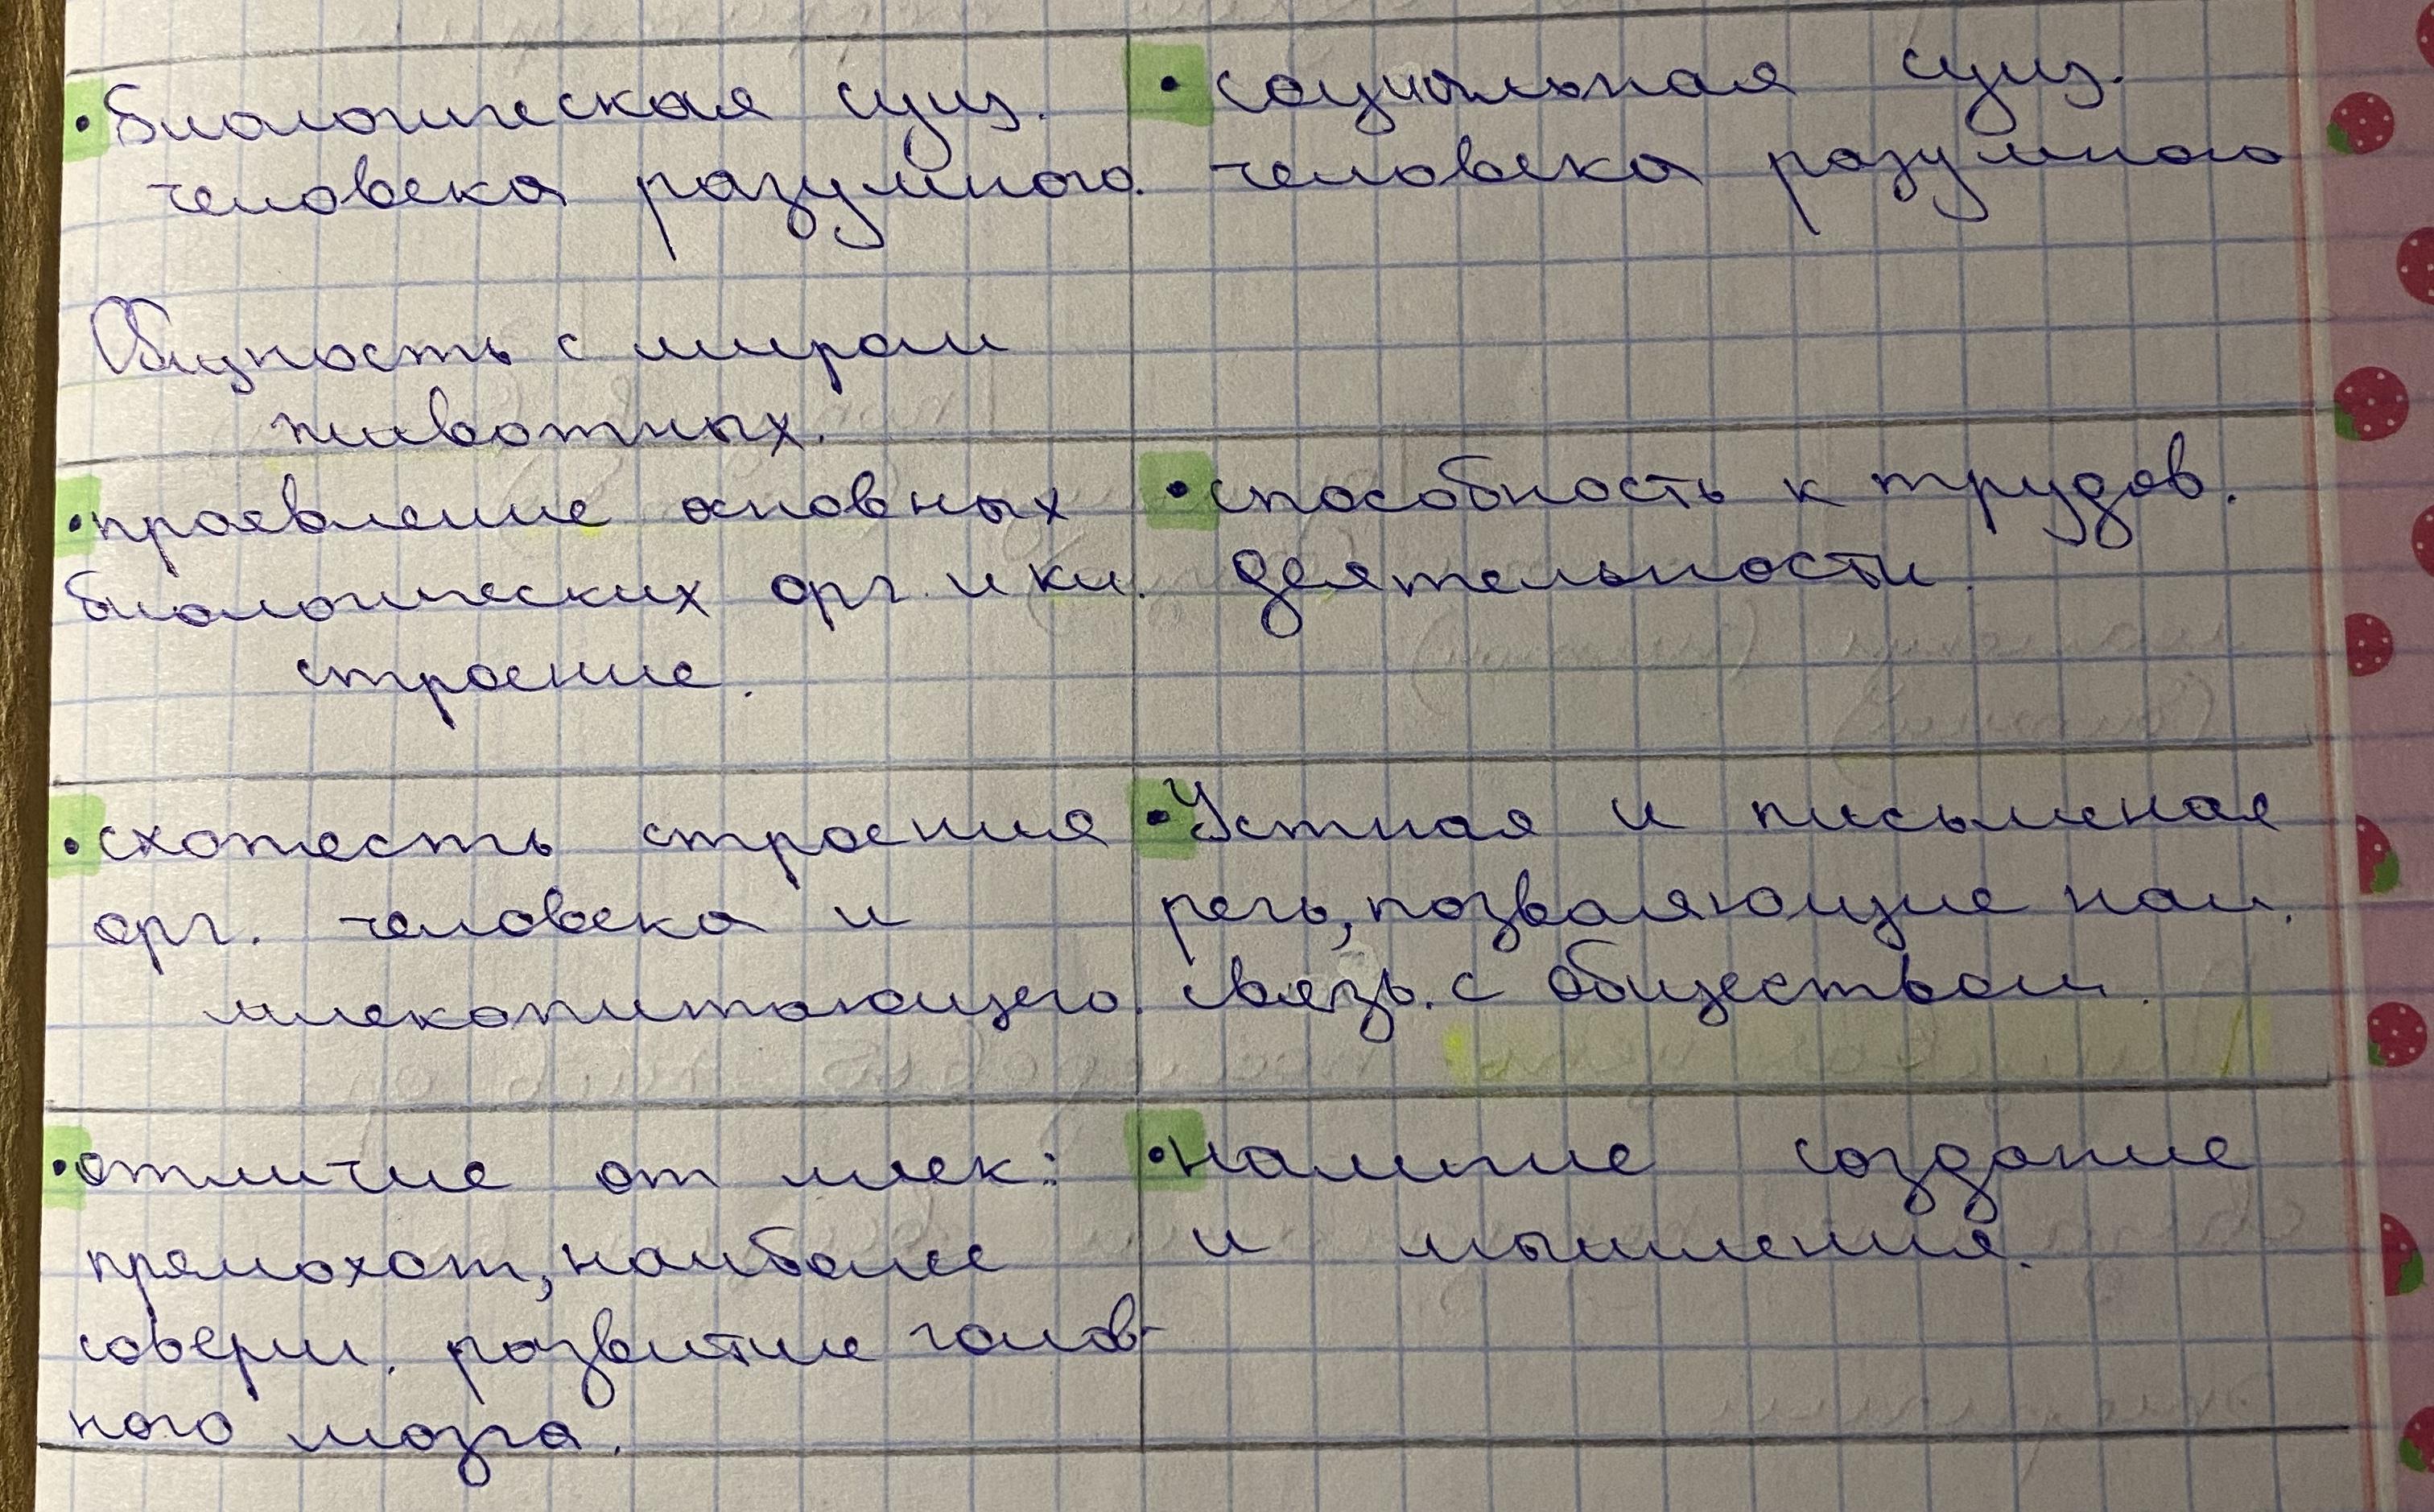 • биологическая сущ.
человека разумного.
Общность с миром
животных.
• социальная сущ.
человека разумного
• проявление основных
биологических орг. и кл.
строение.
• способность к трудов.
деятельности.
• схожесть строения
орг. человека и
млекопитающего.
• Устная и письменая
речь, позваляющие нал.
связь. с обществом.
• отличие от млек:
прямохот, наиболее
соверш. развитие голов-
ного мозга.
• наличие создание
и мышления.